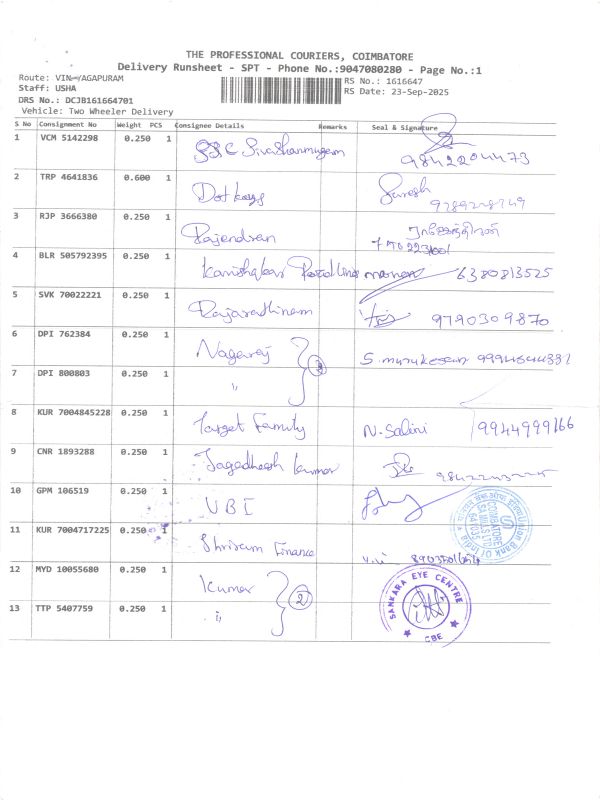 THE PROFESSIONAL COURIERS, COIMBATORE
Delivery Runsheet - SPT - Phone No.:9047080280 - Page No.:1
Route: VIN-YAGAPURAM
RS No.: 1616647
Staff: USHA
RS Date: 23-Sep-2025
DRS No.: DCJB161664701
Vehicle: Two Wheeler Delivery
S No Consignment No Weight PCS Consignee Details Remarks Seal & Signature
1 VCM 5142298 0.250 1 SSC Sivashanmugam 9842204473
2 TRP 4641836 0.600 1 Dot kays Suresh
3 RJP 3666380 0.250 1 Rajendran ராஜேந்திரன்
4 BLR 505792395 0.250 1 Kanishgkar 6380813525
5 SVK 70022221 0.250 1 Rajarathinam 9790309870
6 DPI 762384 0.250 1 Nagaraj S. murukesan
7 DPI 800803 0.250 1 "
8 KUR 7004845228 0.250 1 Target Family N. Salini 9944999166
9 CNR 1893288 0.250 1 Jagadheesh kumar
10 GPM 106519 0.250 1 UBI
Union Bank Of India
COIMBATORE
11 KUR 7004717225 0.250 1 Shriram Finance
12 MYD 10055680 0.250 1 Kumar 2
SANKARA EYE CENTRE
CBE
13 TTP 5407759 0.250 1 "